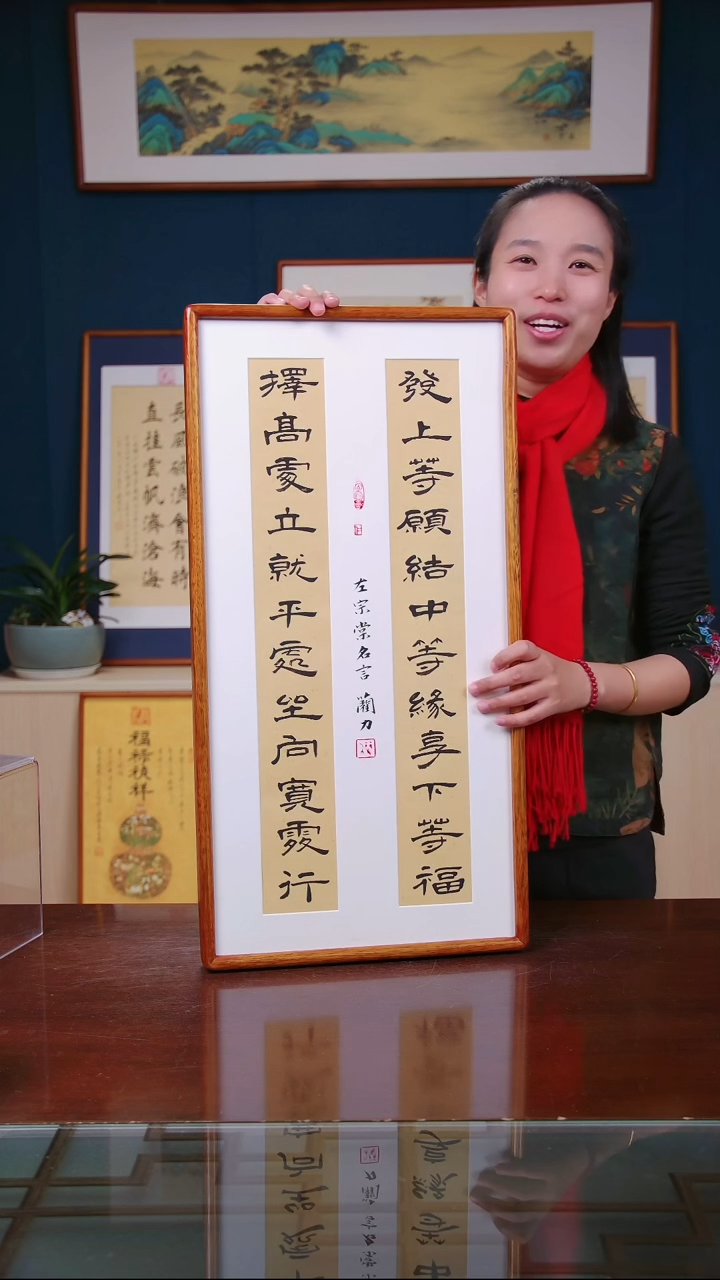 發上等願結中等緣享下等福
擇高處立就平處坐向寬處行
左宗棠名言 蘭力
長風破浪會有時
直挂雲帆濟滄海
福祿禎祥